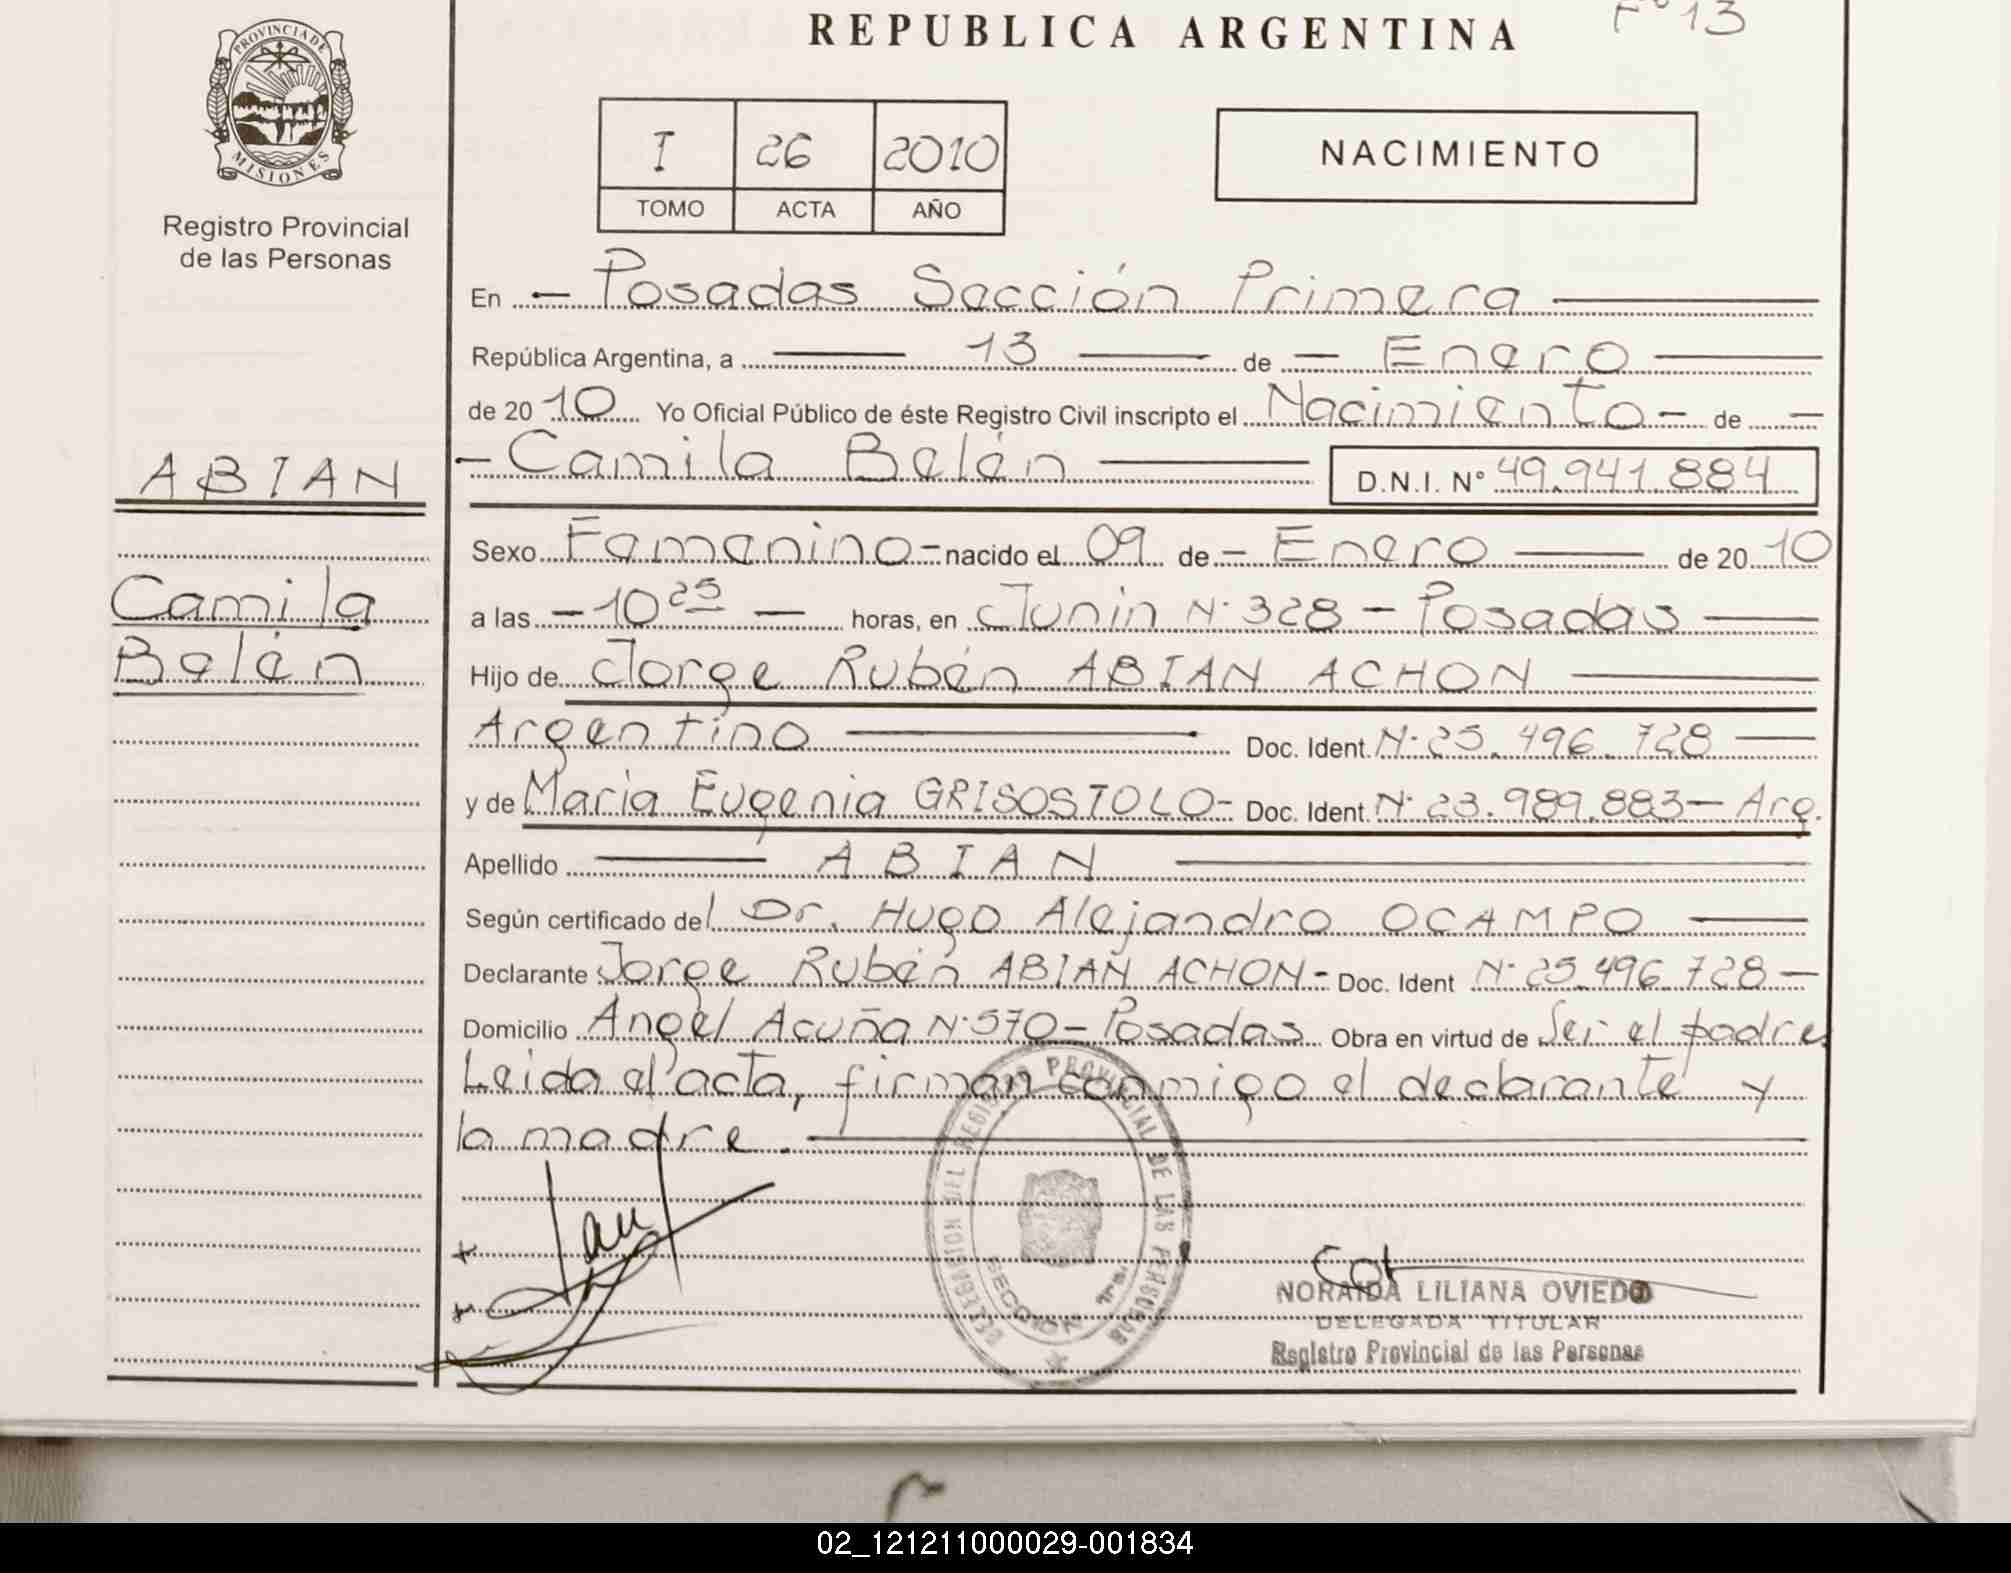 REPUBLICA ARGENTINA
Fº 13
PROVINCIA DE
MISIONES
Registro Provincial
de las Personas
I 26 2010
TOMO ACTA AÑO
NACIMIENTO
En - Posadas Sección Primera
República Argentina, a 13 de - Enero
de 20 10 Yo Oficial Público de éste Registro Civil inscripto el Nacimiento - de -
- Camila Belén D.N.I. Nº 49.941.884
ABIAN
Camila
Belén
Sexo Femenino - nacido el 09 de - Enero de 20 10
a las - 10 25 - horas, en Junin Nº 328 - Posadas
Hijo de Jorge Rubén ABIAN ACHON
Argentino Doc. Ident. Nº 25.496.728
y de María Eugenia GRISOSTOLO - Doc. Ident. Nº 23.989.883 - Arg.
Apellido ABIAN
Según certificado del Dr. Hugo Alejandro OCAMPO
Declarante Jorge Rubén ABIAN ACHON - Doc. Ident Nº 25.496.728 -
Domicilio Angel Acuña Nº 570 - Posadas Obra en virtud de Ser el padre
Leida el acta, firman conmigo el declarante y
la madre.
DELEGACION DEL REGISTRO PROVINCIAL DE LAS PERSONAS
SECCION 1ra.
NORAIDA LILIANA OVIEDO
DELEGADA TITULAR
Registro Provincial de las Personas
02_121211000029-001834